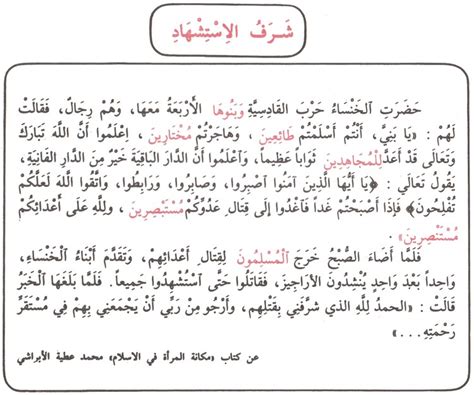 شَرَفُ الاِسْتِشْهَادِ
حَضَرَتِ ٱلْخَنْسَاءُ حَرْبَ القَادِسِيَّةِ وَبَنُوهَا الأَرْبَعَةُ مَعَهَا، وَهُمْ رِجَالٌ، فَقَالَتْ
لَهُمْ : «يَا بَنِيَّ، أَنْتُمْ أَسْلَمْتُمْ طَائِعِينَ ، وَهَاجَرْتُمْ مُخْتَارِينَ ، اِعْلَمُوا أَنَّ اللَّهَ تَبَارَكَ
وَتَعَالَى قَدْ أَعَدَّ لِلْمُجَاهِدِينَ ثَوَاباً عَظِيماً، وَٱعْلَمُوا أَنَّ الدَّارَ البَاقِيَةَ خَيْرٌ مِنَ الدَّارِ الفَانِيَةِ،
يَقُولُ تَعَالَى : ﴿يَا أَيُّهَا الَّذِينَ آمَنُوا اَصْبِرُوا، وَصَابِرُوا، وَرَابِطُوا، وَاتَّقُوا اللَّهَ لَعَلَّكُمْ
تُفْلِحُونَ﴾ فَإِذَا أَصْبَحْتُمْ غَداً فَٱغْدُوا إِلَى قِتَالِ عَدُوِّكُمْ مُسْتَبْصِرِينَ ، وَلِلَّهِ عَلَى أَعْدَائِكُمْ
مُسْتَنْصِرِينَ» .
فَلَمَّا أَضَاءَ الصُّبْحُ خَرَجَ ٱلْمُسْلِمُونَ لِقِتَالِ أَعْدَائِهِمْ، وَتَقَدَّمَ أَبْنَاءُ ٱلْخَنْسَاءِ،
وَاحِداً بَعْدَ وَاحِدٍ يُنْشِدُونَ الأَرَاجِيزَ، فَقَاتَلُوا حَتَّى ٱسْتُشْهِدُوا جَمِيعاً. فَلَمَّا بَلَغَهَا الْخَبَرُ
قَالَتْ : «الحَمدُ لِلَّهِ الذي شَرَّفَنِي بِقَتْلِهِم، وَأَرْجُو مِنْ رَبِّي أَنْ يَجْمَعَنِي بِهِمْ فِي مُسْتَقَرِّ
رَحْمَتِهِ...»
عن كتاب «مكانة المرأة في الاسلام» محمد عطية الأبراشي